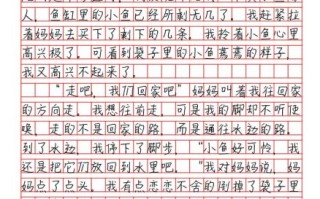 人，鱼缸里的小鱼已经所剩无几了，我赶紧拉
着妈妈去买下了剩下的几条，我拎着小鱼心里
高兴极了，可看到袋子里的小鱼蔫蔫的样子，
我又高兴不起来了。
“走吧，我们回家吧”妈妈叫着我往回家
的方向走，我想往前走，可是我的脚却不听使
唤，走的不是回家的路，而是通往水边的路，
到了水边，我停下了脚步，“小鱼好可怜，我
还是把它们放回到水里吧。”我对妈妈说，妈
妈点了点头，我有点恋恋不舍的倒掉了袋子里